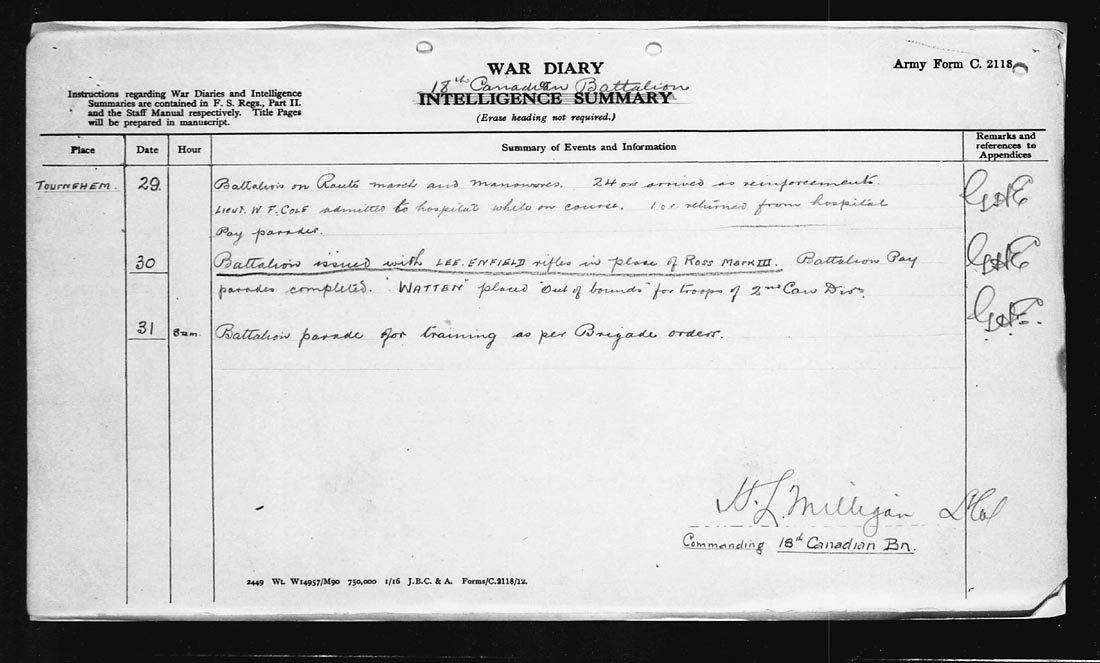 WAR DIARY
Army Form C. 2118.
18th Canadian Battalion
or
INTELLIGENCE SUMMARY
(Erase heading not required.)
Instructions regarding War Diaries and Intelligence
Summaries are contained in F. S. Regs., Part II.
and the Staff Manual respectively. Title Pages
will be prepared in manuscript.
Place Date Hour Summary of Events and Information Remarks and
references to
Appendices
TOURNEHEM. 29. Battalion on Route march and manouvres. 24 ors arrived as reinforcements.
LIEUT. W. F. COLE admitted to hospital while on course. 1 o.r. returned from hospital
Pay parades.
30 Battalion issued with LEE. ENFIELD rifles in place of ROSS MARK III. Battalion Pay
parades completed. "WATTEN" placed "out of bounds" for troops of 2nd Can Divn.
31 8 am. Battalion parade for training as per Brigade orders.
H. L. Milligan Lt Col
Commanding 18th Canadian Bn.
2449 Wt. W14957/M90 750,000 1/16 J.B.C. & A. Forms/C.2118/12.